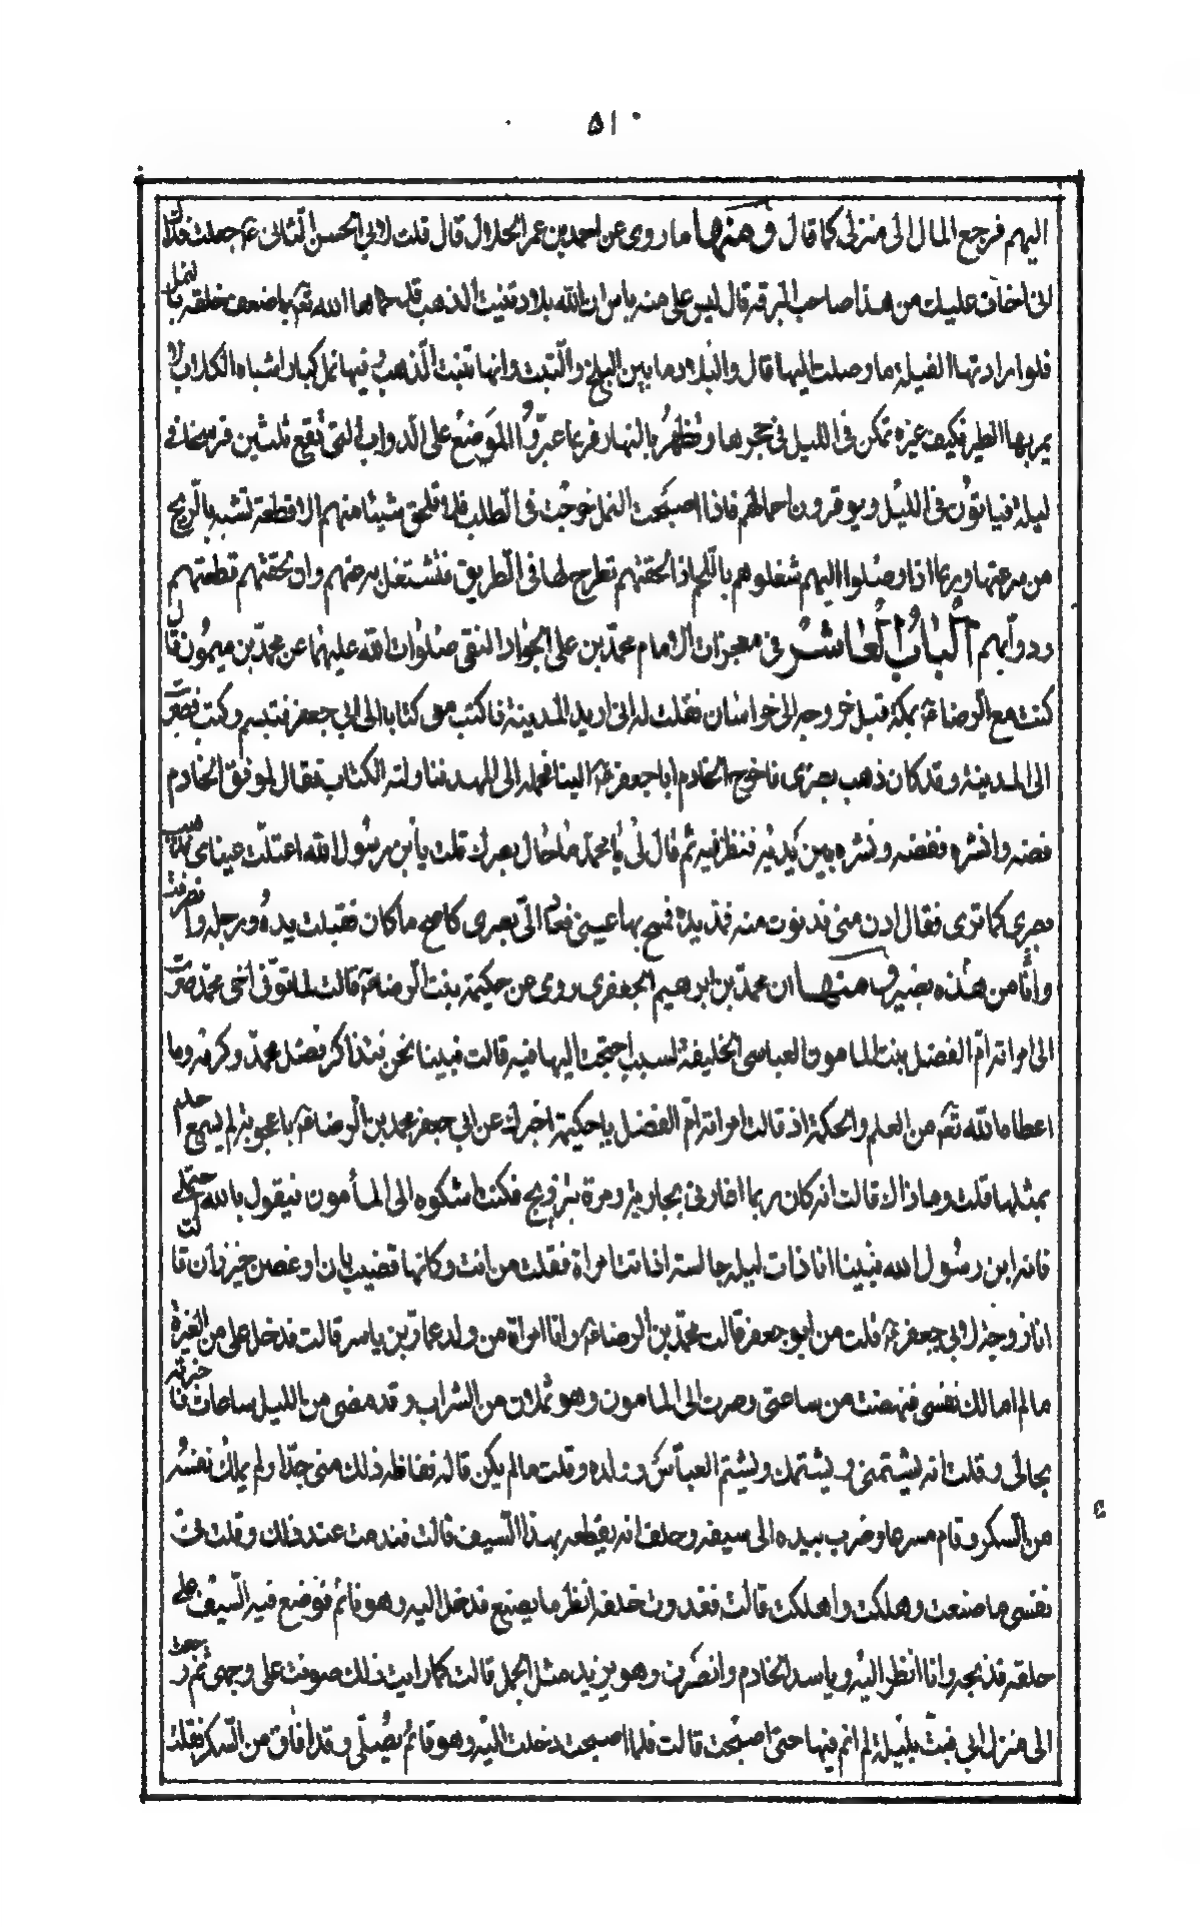 ٥١٠
اليهم فرجع المال الى منزلى كما قال و منها ما روى عن احمد بن عمر الحلال قال قلت لابى الحسن الثانى ع جعلت فداك
انى اخاف عليك من هذا صاحب البرقه قال ليس على منه باس ان لله بلادا تنبت الذهب قد حماها الله تعم باضعف خلقه بالنمل
فلو ارادتها الفيلة ما وصلت اليها قال والبلاد ما بين البلخ والتبت وانها تنبت الذهب وفيها نمل كبار اشباه الكلاب لا
يمر بها الطير فكيف غيره تمكن فى الليل فى جحرها وتظهر بالنهار فربما عبروا الموضع على الدواب التى تقع ثلثين فرسخا فى
ليلة فياتون فى الليل ويوقرون احمالهم فاذا اصبحت النمل خرجت فى الطلب فلا تلحق شيئا منهم الا قطعة تشبه بالريح
من سرعتها وربما اذا وصلوا اليهم شغلوهم باللحم اذا لحقتهم تطرح لها فى الطريق فتشتغل به عنهم وان لحقتهم قطعتهم
ودوابهم الباب العاشر فى معجزات الامام محمد بن على الجواد التقى صلوات الله عليهما عن محمد بن ميمون قال
كنت مع الرضا ع بمكة قبل خروجه الى خراسان فقلت له انى اريد المدينة فاكتب معى كتابا الى ابى جعفر فتبسم وكتب فصرت
الى المدينة وقد كان ذهب بصرى فاخرج الخادم ابا جعفر ع الينا فحمله الى المهد فناولته الكتاب فقال لموفق الخادم
فضه وانشره ففضه ونشره بين يديه فنظر فيه ثم قال لى يا محمد ما حال بصرك قلت يا بن رسول الله اعتلت عيناى فذهب
بصرى كما ترى فقال ادن منى فدنوت منه فمد يده فمسح بها عينى فعاد الى بصرى كاصح ما كان فقبلت يده ورجله وانصرفت
وانا من هذه بصير و منها ان محمد بن ابرهيم الجعفرى روى عن حكيمة بنت الرضا ع قالت لما توفى اخى محمد صرت
الى امراته ام الفضل بنت المامون العباسى الخليفة لسبب احتجت اليها فيه قالت فبينا نحن نتذاكر فضل محمد وكرمه وما
اعطاه الله تعم من العلم والحكمة اذ قالت امراته ام الفضل يا حكيمة اخبرك عن ابى جعفر محمد بن الرضا ع باعجوبة لم يسمع احد
بمثلها قلت وما ذاك قالت انه كان ربما اغارنى بجارية ومرة بتزويج فكنت اشكوه الى المأمون فيقول يا بنية احتملى
فانه ابن رسول الله فبينا انا ذات ليلة جالسة اذ اتت امراة فقلت من انت وكانها قضيب بان او غصن خيزران قالت
انا زوجة لابى جعفر ع قلت من ابو جعفر قالت محمد بن الرضا ع وانا امراة من ولد عمار بن ياسر قالت فدخل على من الغيرة
ما لم املك نفسى فنهضت من ساعتى وصرت الى المامون وهو ثملان من الشراب وقد مضى من الليل ساعات فاخبرته
بحالى وقلت انه يشتمنى ويشتمك ويشتم العباس وولده وقلت ما لم يكن قاله فغاظه ذلك منى جدا ولم يملك نفسه
من السكر وقام مسرعا وضرب بيده الى سيفه وحلف انه يقطعه بهذا السيف قالت فندمت عند ذلك وقلت فى
نفسى ما صنعت وهلكت واهلكت قالت فعدوت خلفه انظر ما يصنع فدخل اليه وهو نائم فوضع فيه السيف على
حلقه فذبحه وانا انظر اليه وياسر الخادم وانصرف وهو يزبد مثل الجمل قالت كما رايت ذلك صرفت على وجهى ثم رجعت
الى منزل ابى فبت بليلة لم انم فيها حتى اصبحت قالت فلما اصبحت دخلت اليه وهو قائم يصلى وقد افاق من السكر فقلت